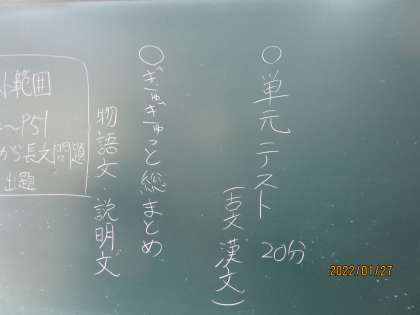 ○単元テスト 20分
(古文 漢文)
○ぎゅぎゅっと総まとめ
物語文・説明文
範囲
～P51
から長文問題
出題
2022/01/27